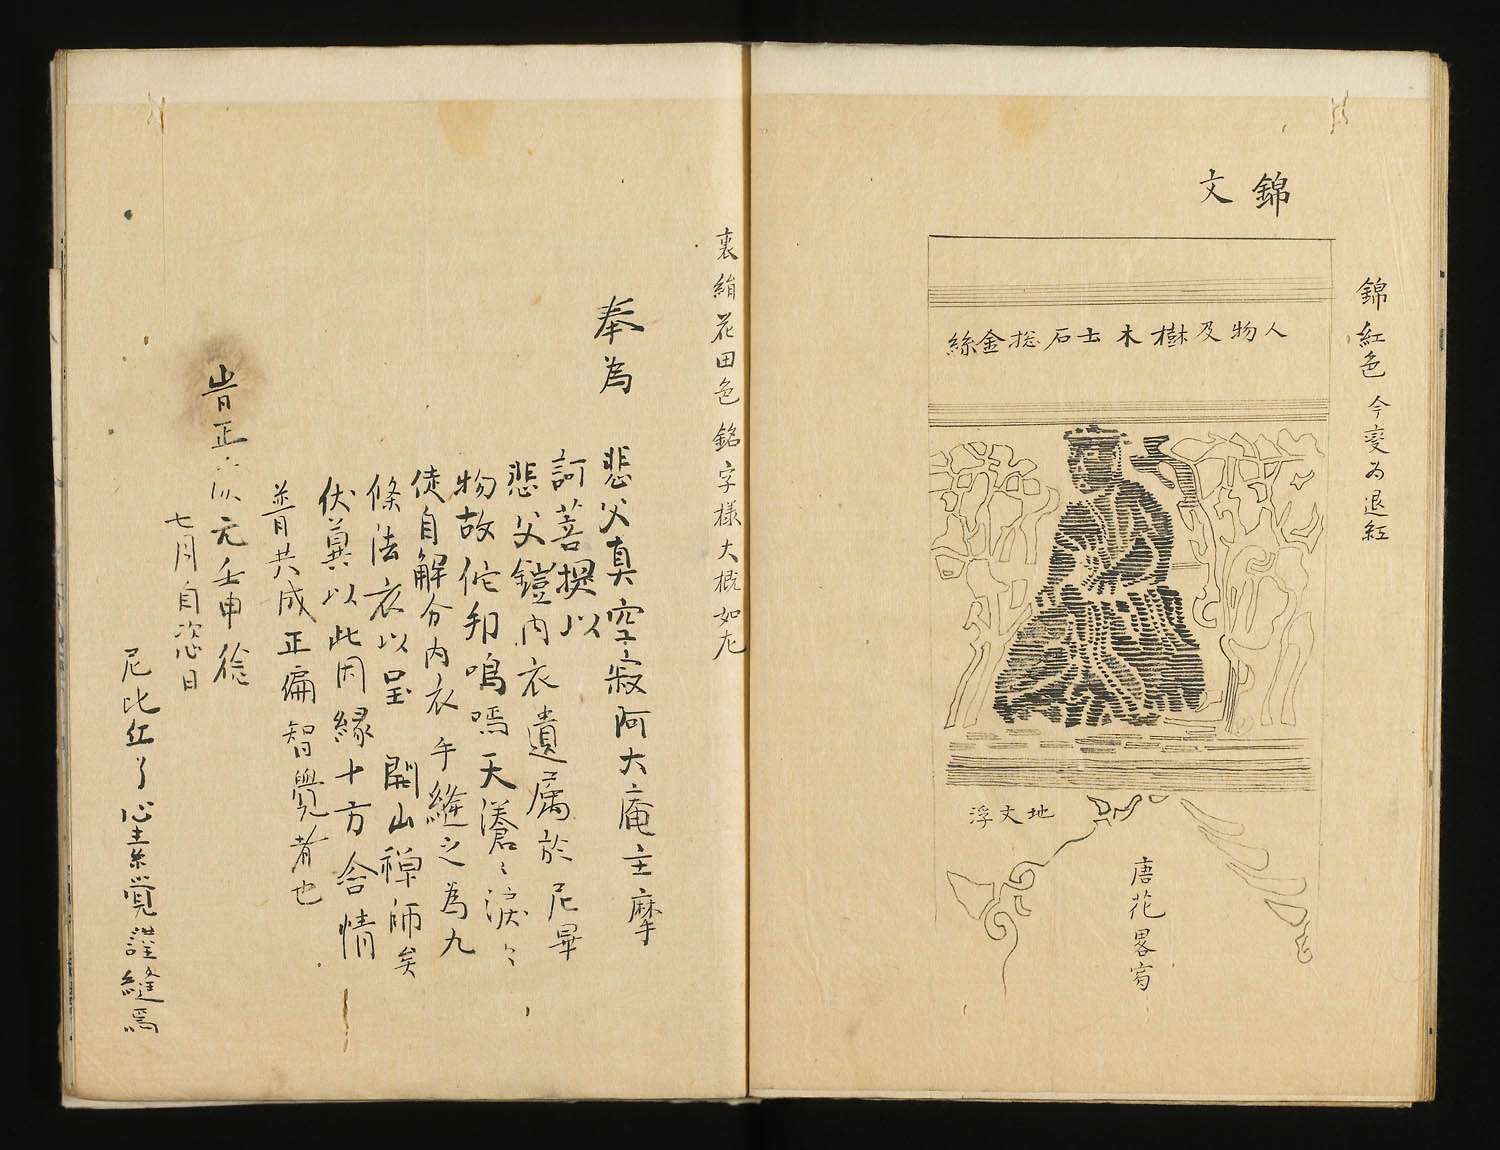 錦文
錦紅色 今変為退紅
人物及樹木土石捴金絲
地文浮
唐花畧有
裏絹花田色 銘字様大概如左
奉為
悲父真空寂阿大庵主摩
訶菩提以
悲父鎧内衣遺属於尼畢
物故佗邦嗚呼天滄〻涙〻
徒自解分内衣手縫之為九
條法衣以呈 開山禅師矣
伏冀以此因縁十方含情
普共成正徧智覺者也
旹正
元壬申
七月自恣日
尼比丘了心素覺謹縫焉